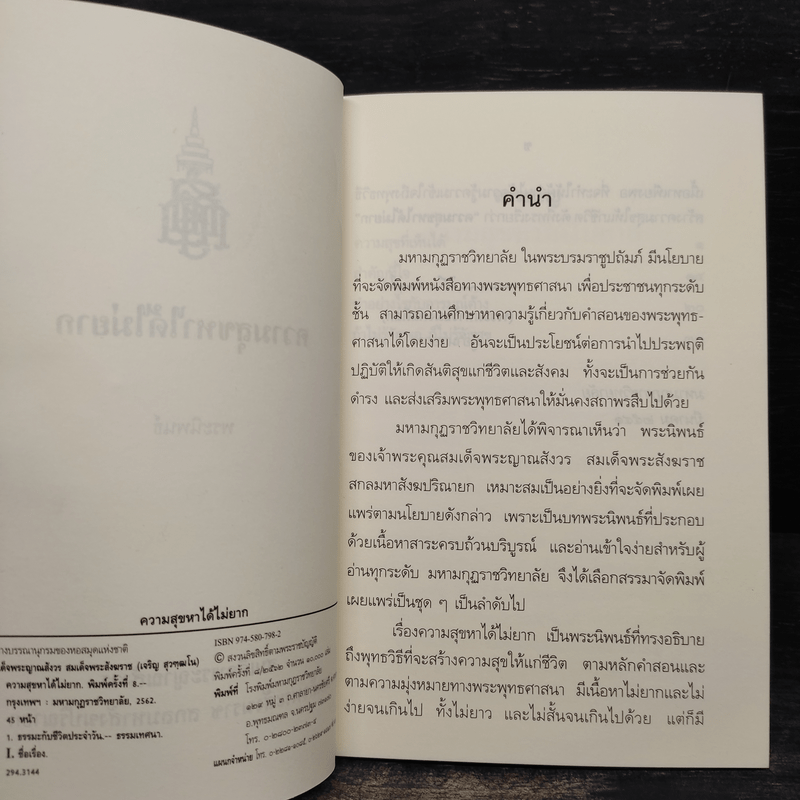 ความสุขหาได้ไม่ยาก
างบรรณานุกรมของหอสมุดแห่งชาติ
ด็จพระญาณสังวร สมเด็จพระสังฆราช (เจริญ สุวฑฺฒโน)
ความสุขหาได้ไม่ยาก. พิมพ์ครั้งที่ 8.--
กรุงเทพฯ : มหามกุฏราชวิทยาลัย, 2562.
45 หน้า
1. ธรรมะกับชีวิตประจำวัน.-- ธรรมเทศนา.
I. ชื่อเรื่อง.
294.3144
ISBN 974-580-798-2
© สงวนลิขสิทธิ์ตามพระราชบัญญัติ
พิมพ์ครั้งที่ ๘/๒๕๖๒ จำนวน ๑๐,๐๐๐
พิมพ์ที่ โรงพิมพ์มหามกุฏราชวิทยาลัย
อ.พุทธมณฑล จ.นครปฐม
โทร.
แผนกจำหน่าย โทร.
คำนำ
มหามกุฏราชวิทยาลัย ในพระบรมราชูปถัมภ์ มีนโยบาย
ที่จะจัดพิมพ์หนังสือทางพระพุทธศาสนา เพื่อประชาชนทุกระดับ
ชั้น สามารถอ่านศึกษาหาความรู้เกี่ยวกับคำสอนของพระพุทธ-
ศาสนาได้โดยง่าย อันจะเป็นประโยชน์ต่อการนำไปประพฤติ
ปฏิบัติให้เกิดสันติสุขแก่ชีวิตและสังคม ทั้งจะเป็นการช่วยกัน
ดำรง และส่งเสริมพระพุทธศาสนาให้มั่นคงสถาพรสืบไปด้วย
มหามกุฏราชวิทยาลัยได้พิจารณาเห็นว่า พระนิพนธ์
ของเจ้าพระคุณสมเด็จพระญาณสังวร สมเด็จพระสังฆราช
สกลมหาสังฆปริณายก เหมาะสมเป็นอย่างยิ่งที่จะจัดพิมพ์เผย
แพร่ตามนโยบายดังกล่าว เพราะเป็นบทพระนิพนธ์ที่ประกอบ
ด้วยเนื้อหาสาระครบถ้วนบริบูรณ์ และอ่านเข้าใจง่ายสำหรับผู้
อ่านทุกระดับ มหามกุฏราชวิทยาลัย จึงได้เลือกสรรมาจัดพิมพ์
เผยแพร่เป็นชุด ๆ เป็นลำดับไป
เรื่องความสุขหาได้ไม่ยาก เป็นพระนิพนธ์ที่ทรงอธิบาย
ถึงพุทธวิธีที่จะสร้างความสุขให้แก่ชีวิต ตามหลักคำสอนและ
ตามความมุ่งหมายทางพระพุทธศาสนา มีเนื้อหาไม่ยากและไม่
ง่ายจนเกินไป ทั้งไม่ยาว และไม่สั้นจนเกินไปด้วย แต่ก็มี